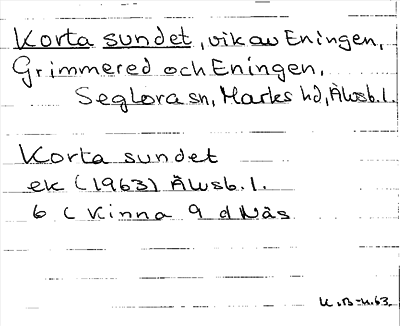 Korta sundet, vik av Eningen,
Grimmered och Eningen,
Seglora sn, Marks hd, Älvsb. l.
Korta sundet
ek (1963) Älvsb. l.
6 C Kinna 9 d Näs
K.B-n.63.